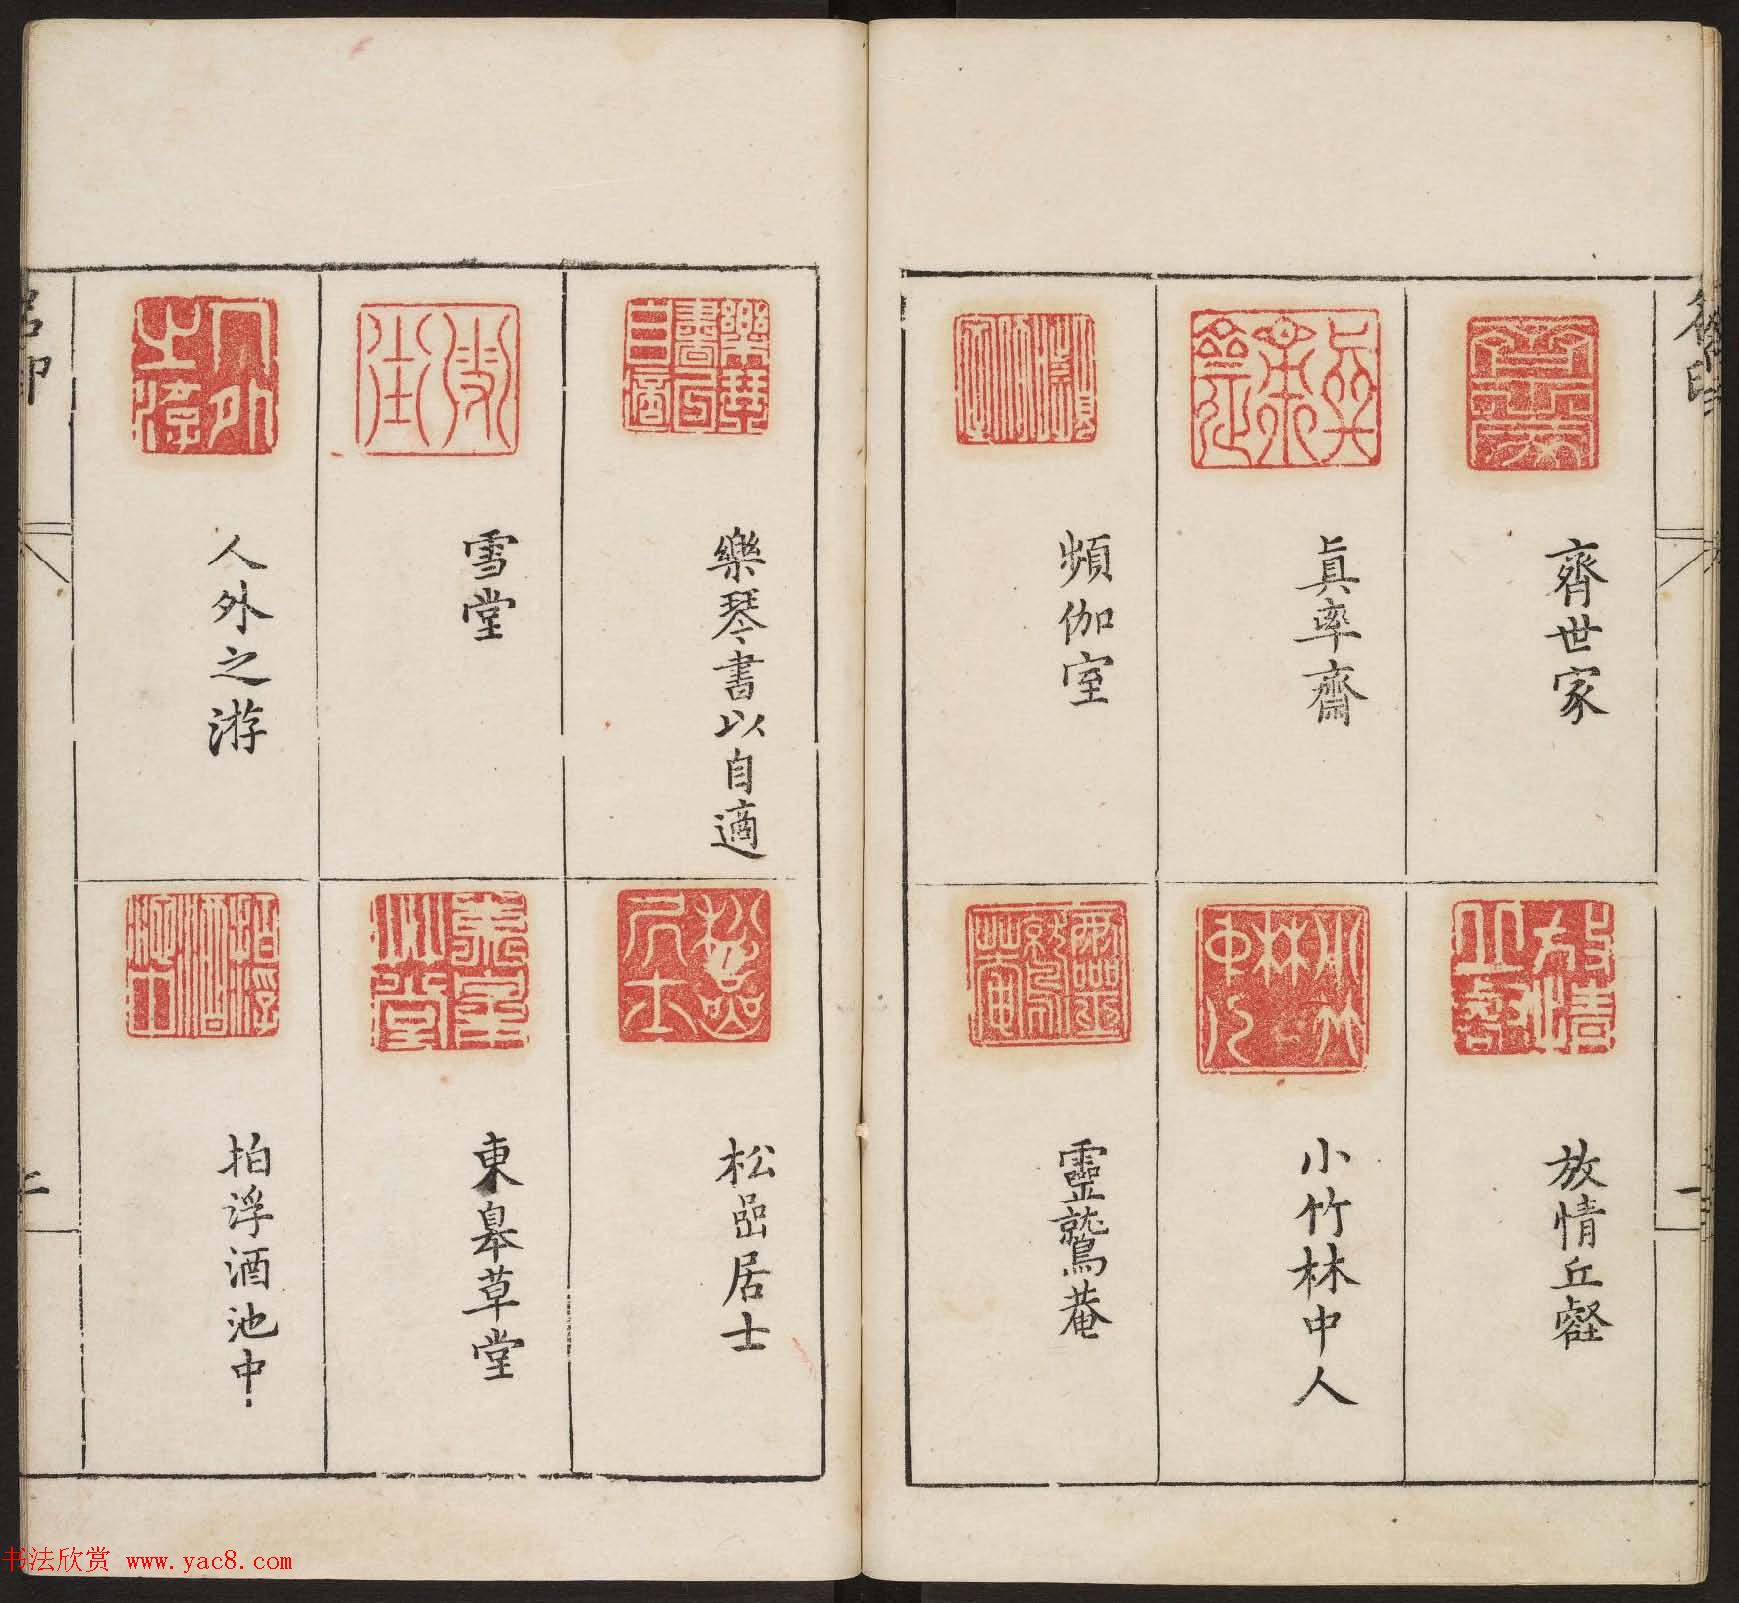 齊世家
真率齋
頻伽室
放情丘壑
小竹林中人
靈鷲菴
樂琴書以自適
雪堂
人外之游
松嵒居士
東皋草堂
拍浮酒池中
名印
二
书法欣赏 www.yac8.com